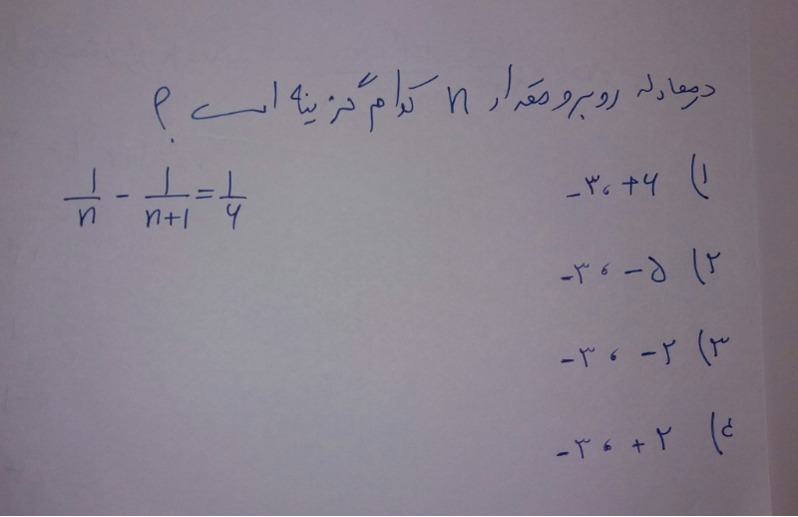 در معادله روبرو مقدار n کدام گزینه است ؟
1/n - 1/(n+1) = 1/۶
۱) -۳ ، +۶
۲) -۳ ، -۵
۳) -۳ ، -۲
۴) -۳ ، +۲